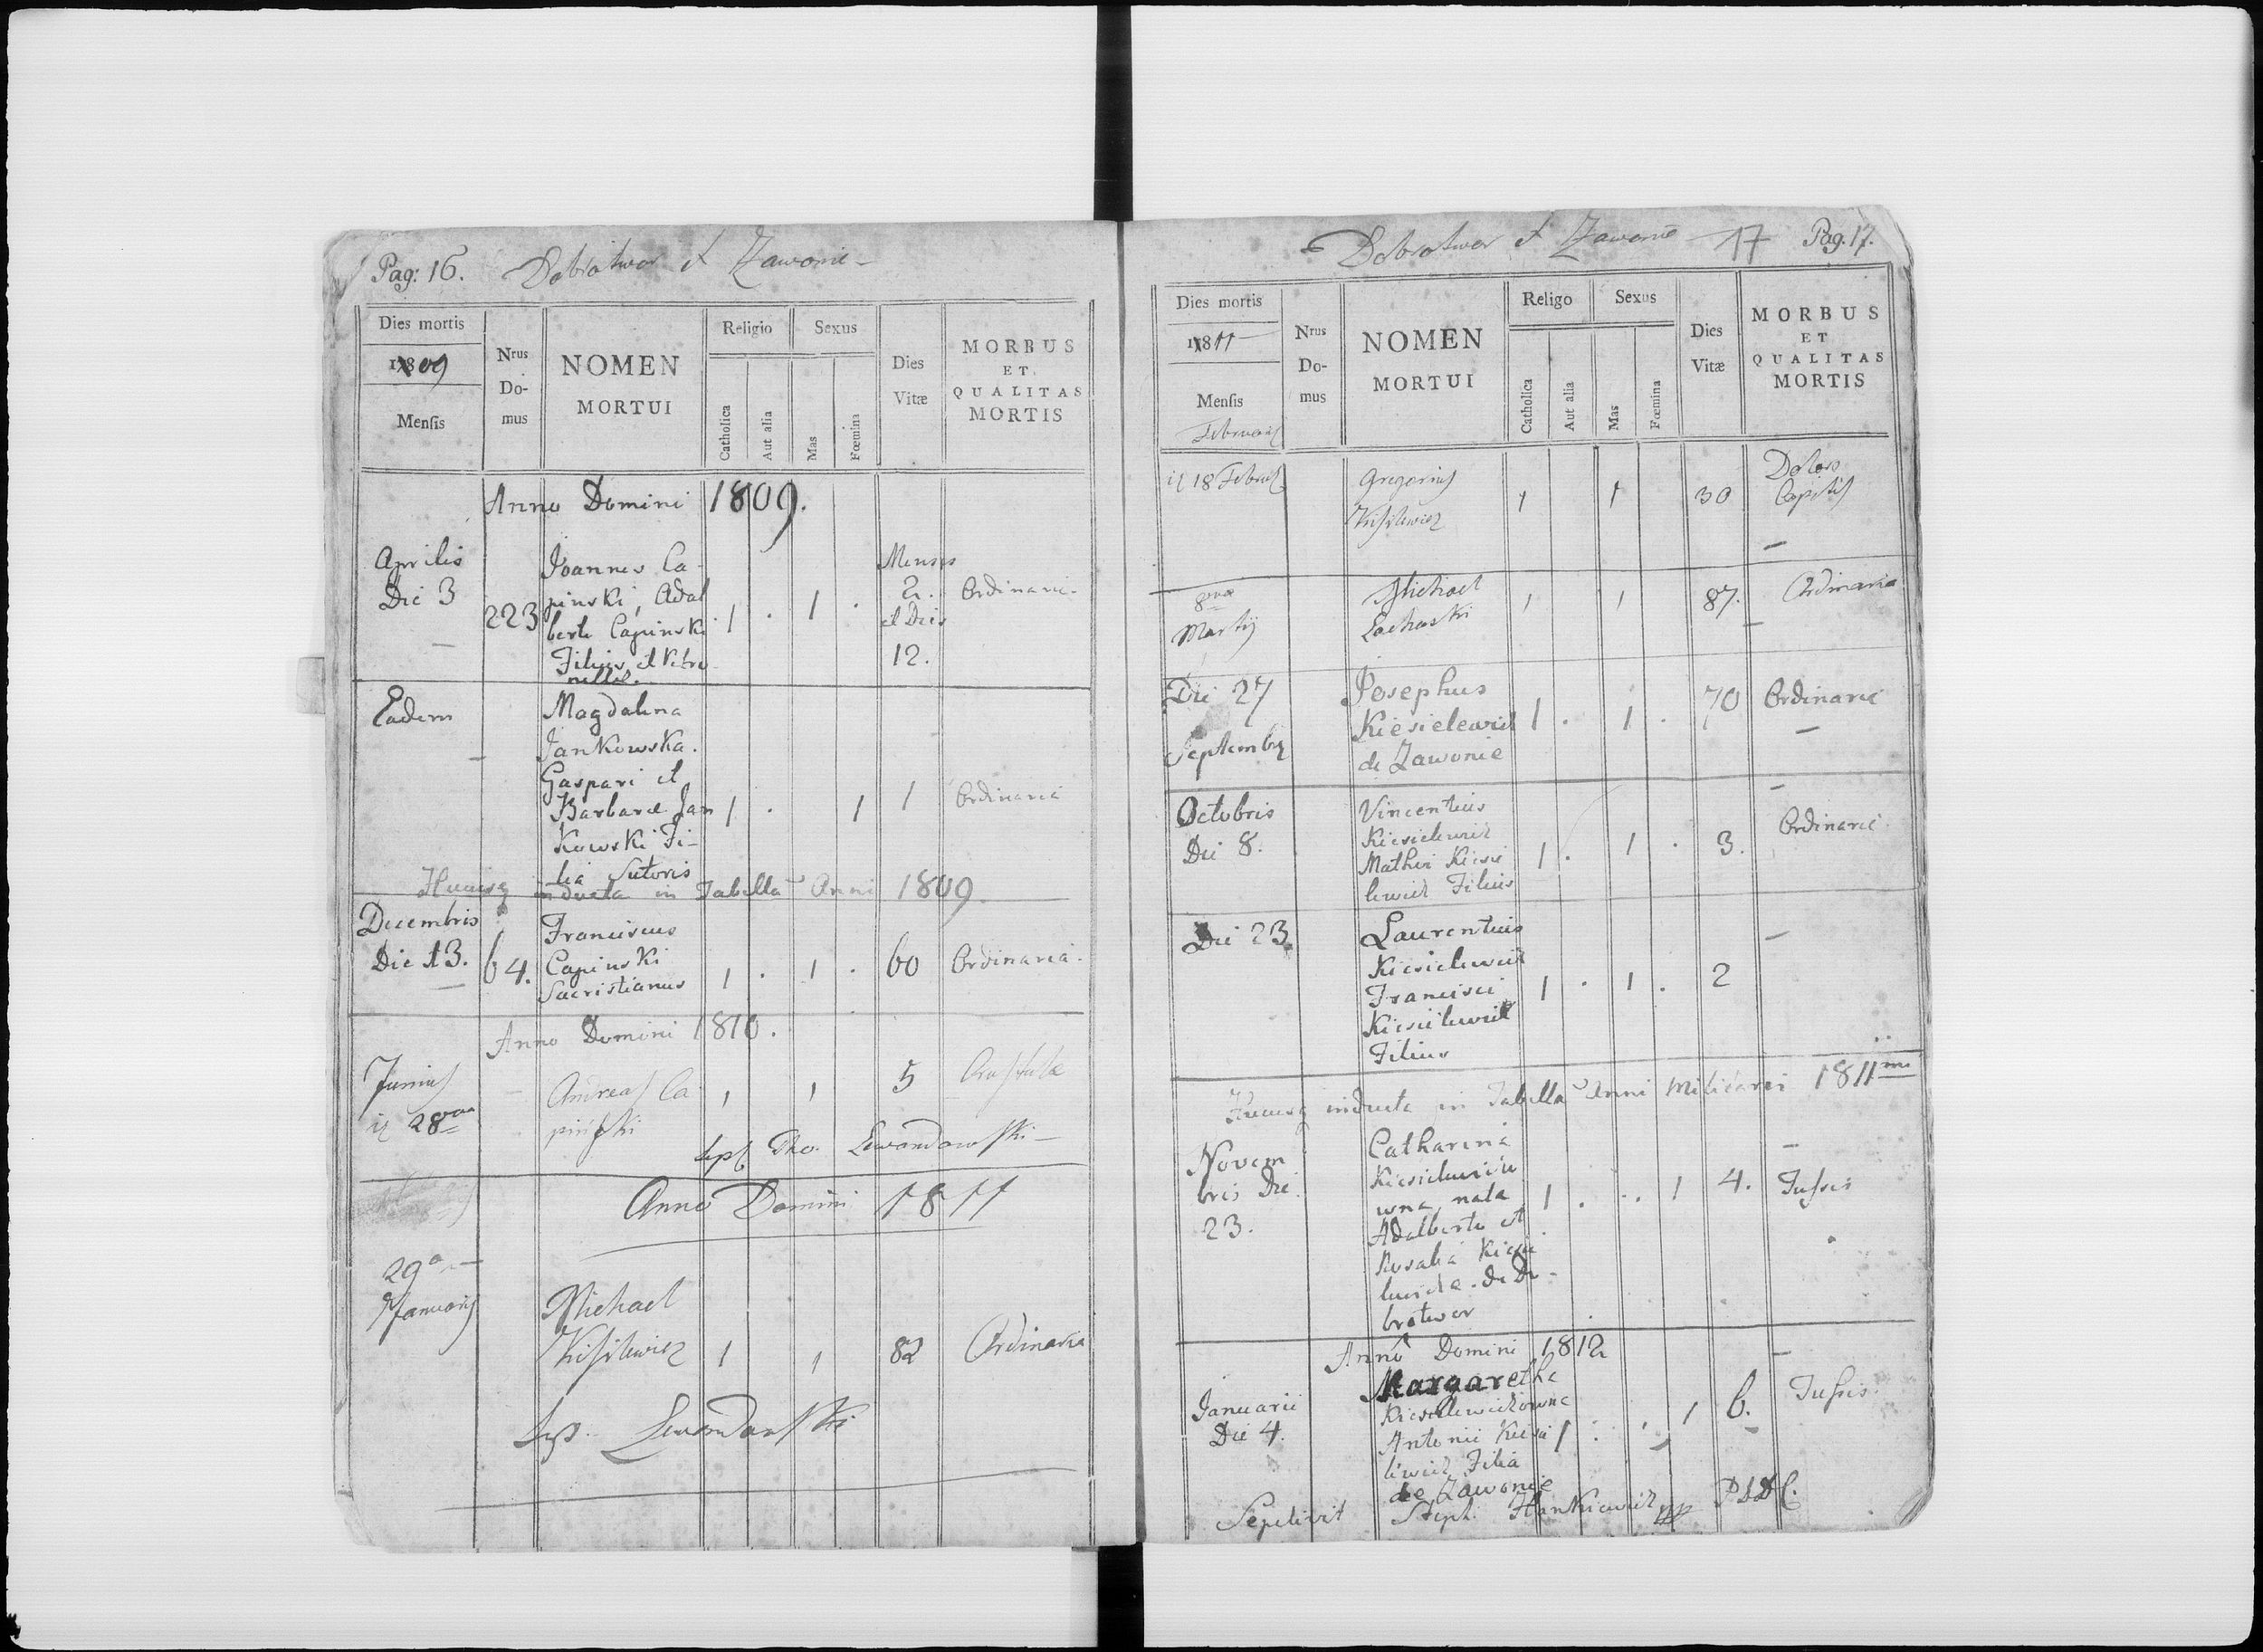 Pag: 16. Dobrotwor et Zawonie
Dies mortis
1809
Mensis
Nrus
Do-
mus
NOMEN
MORTUI
Religio
Catholica
Aut alia
Sexus
Mas
Fœmina
Dies
Vitæ
MORBUS
ET
QUALITAS
MORTIS
Anno Domini 1809.
Aprilis
Die 3
223
Joannes Ca-
pinski, Adal
berti Capinski
Filius et Petro
nellae.
1 . 1 .
Menses
2.
et Dies
12.
Ordinaria.
Eadem
Magdalena
Jankowska.
Gaspari et
Barbarae Jan
Kowski Fi-
lia Sutoris
1 . 1
1
Ordinaria
Hucusq inducta in Tabella Anni 1809.
Decembris
Die 13.
64.
Franciscus
Capinski
Sacristianus
1 . 1 .
60
Ordinaria.
Anno Domini 1810.
Junius
28va
Andreas Ca
pinski
1 1
5
Lewandowski
Anno Domini 1811
29a
Januarij
Michael
Kisilewicz
1 1
82
Ordinaria
Lewandowski
Dobrotwor et Zawonie 17 Pag. 17.
Dies mortis
1811
Mensis
Februarij
Nrus
Do-
mus
NOMEN
MORTUI
Religo
Catholica
Aut alia
Sexus
Mas
Fœmina
Dies
Vitæ
MORBUS
ET
QUALITAS
MORTIS
18
Gregorius
Kisilewicz
1 1
30
Dolore
Capitis
8va
Martij
Michael
1 1
87.
Ordinaria
Die 27
Septembr
Josephus
Kiesielewicz
de Zawonie
1 . 1 .
70
Ordinaria
Octobris
Die 8.
Vincentius
Kiesielewicz
Mathei Kiesie
lewicz Filius
1 . 1 .
3.
Ordinaria
Die 23
Laurentius
Kiesielewicz
Francisci
Kiesielewicz
Filius
1 . 1 .
2
Hucusq inducta in Tabella Anni Militaris 1811mi
Novem
bris Die
23.
Catharina
Kiesielewiczo
wna, nata
Adalberto et
Rosalia Kiesie
lewicze. de Do-
brotwor
1 . . 1
4.
Tussis
Anno Domini 1812
Januarii
Die 4.
Margaretha
Kiesielewiczowna
Antonii Kiesie
lewicz Filia
de Zawonie
1 . . 1
6.
Tussis.
Sepelivit Steph. Hankiewicz